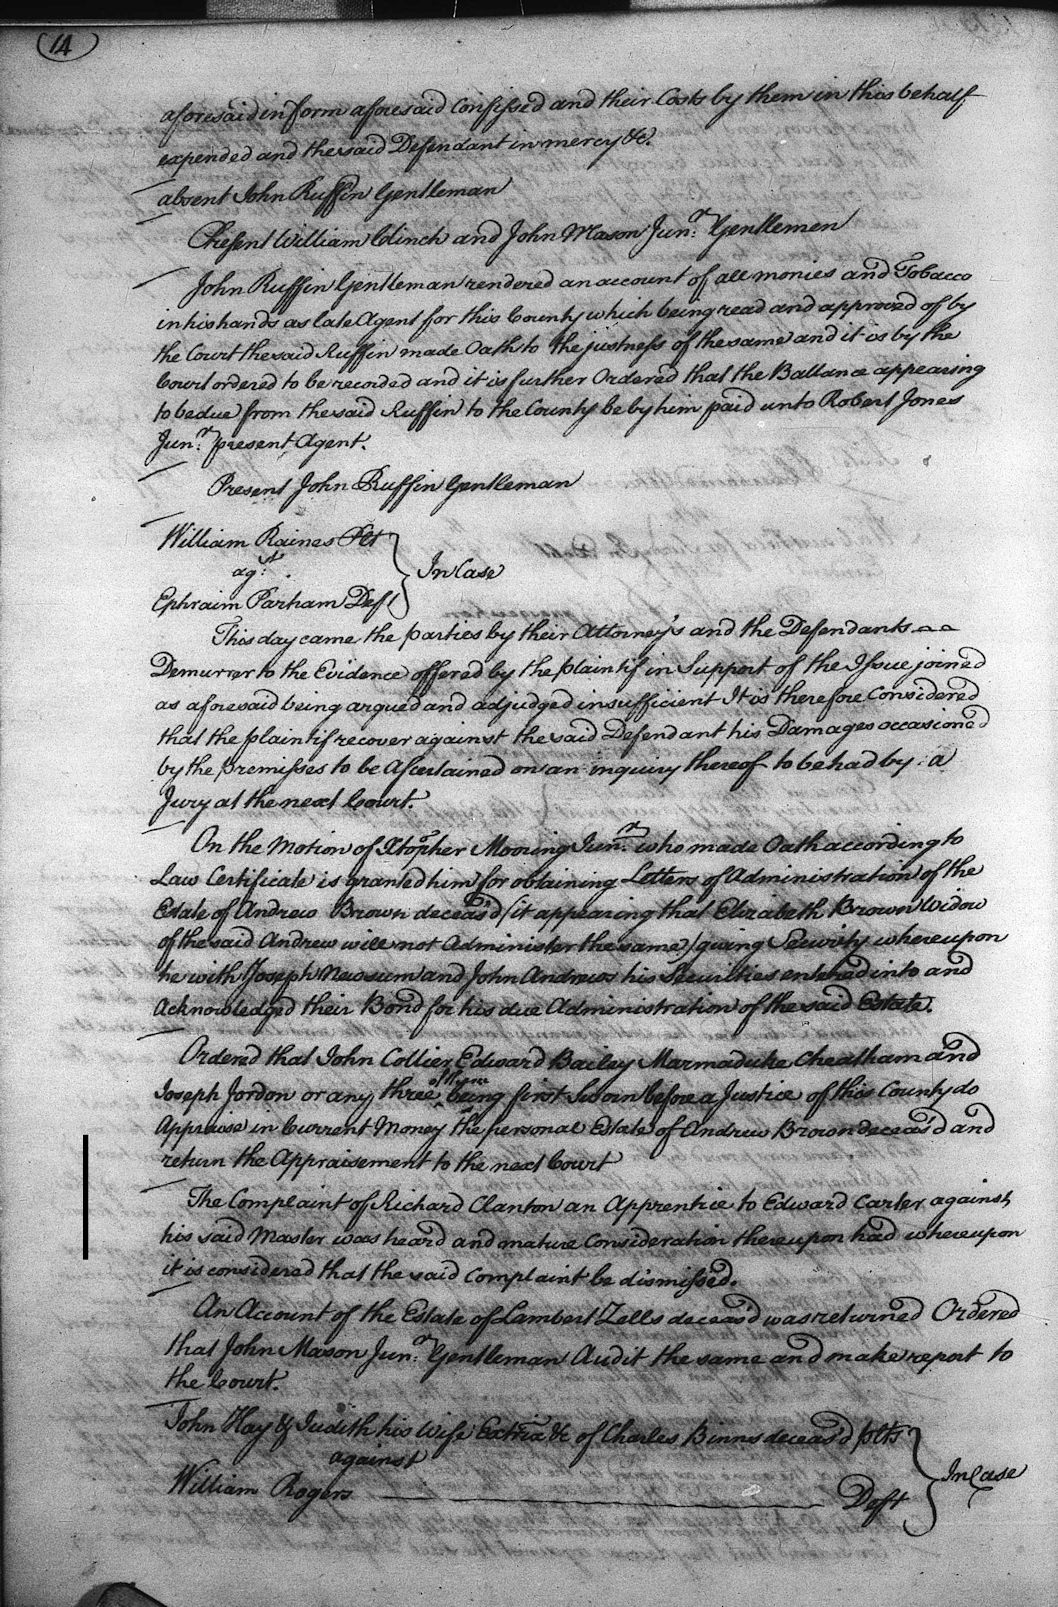 14
aforesaid in form aforesaid Confessed and their Costs by them in this behalf
expended and the said Defendant in mercy &c.
absent John Ruffin Gentleman
Present William Clinch and John Mason Junr. Gentlemen
John Ruffin Gentleman rendered an account of all monies and Tobacco
in his hands as late Agent for this County which being read and approved off by
the Court the said Ruffin made Oath to the justness of the same and it is by the
Court ordered to be recorded and it is further Ordered that the Ballance appearing
to be due from the said Ruffin to the County be by him paid unto Robert Jones
Junr. present Agent.
Present John Ruffin Gentleman
William Raines Plt
agst.
Ephraim Parham Deft
In Case
This day came the parties by their Attorney's and the Defendants
Demurrer to the Evidence offered by the plaintif in Support of the Issue joined
as aforesaid being argued and adjudged insufficient It is therefore Considered
that the plaintif recover against the said Defendant his Damages occasioned
by the premisses to be Ascertained on an inquiry thereof to be had by a
Jury at the next Court.
On the Motion of Xtopher Mooring Junr. who made Oath according to
Law Certificate is granted him for obtaining Letters of Administration of the
Estate of Andrew Brown deceas'd (it appearing that Elizabeth Brown Widow
of the said Andrew will not Administer the same) giving Security whereupon
he with Joseph Newsum and John Andrews his Securities entered into and
Acknowledged their Bond for his due Administration of the said Estate.
Ordered that John Collier Edward Bailey Marmaduke Cheatham and
Joseph Jordon or any three of them being first Sworn before a Justice of this County do
Appraise in Current Money the personal Estate of Andrew Brown deceas'd and
return the Appraisement to the next Court
The Complaint of Richard Clanton an Apprentice to Edward Carter against
his said Master was heard and mature Consideration thereupon had whereupon
it is considered that the said Complaint be dismissed.
An Account of the Estate of Lambert Zells deceas'd was returned Ordered
that John Mason Junr. Gentleman Audit the same and make report to
the Court.
John Hay & Judith his Wife Extrix &c of Charles Binns deceas'd plts
against
William Rogers Deft
In Case